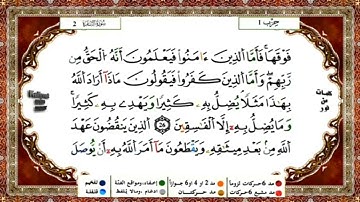 حزب 1
سورة البقرة
2
فَوْقَهَا فَأَمَّا ٱلَّذِينَ ءَامَنُوا۟ فَيَعْلَمُونَ أَنَّهُ ٱلْحَقُّ مِن
رَّبِّهِمْ وَأَمَّا ٱلَّذِينَ كَفَرُوا۟ فَيَقُولُونَ مَاذَآ أَرَادَ ٱللَّهُ
بِهَٰذَا مَثَلًا يُضِلُّ بِهِۦ كَثِيرًا وَيَهْدِى بِهِۦ كَثِيرًا
وَمَا يُضِلُّ بِهِۦٓ إِلَّا ٱلْفَٰسِقِينَ 26 ٱلَّذِينَ يَنقُضُونَ عَهْدَ
ٱللَّهِ مِنۢ بَعْدِ مِيثَٰقِهِۦ وَيَقْطَعُونَ مَآ أَمَرَ ٱللَّهُ بِهِۦٓ أَن يُوصَلَ
كلمات
من
نور
مد 6 حركات لزوما
مد 2 أو 4 أو 6 جوازا
إخفاء، ومواقع الغنة
تفخيم
مد مشبع 6 حركات
مد حركتان
إدغام، وما لا يلفظ
قلقلة